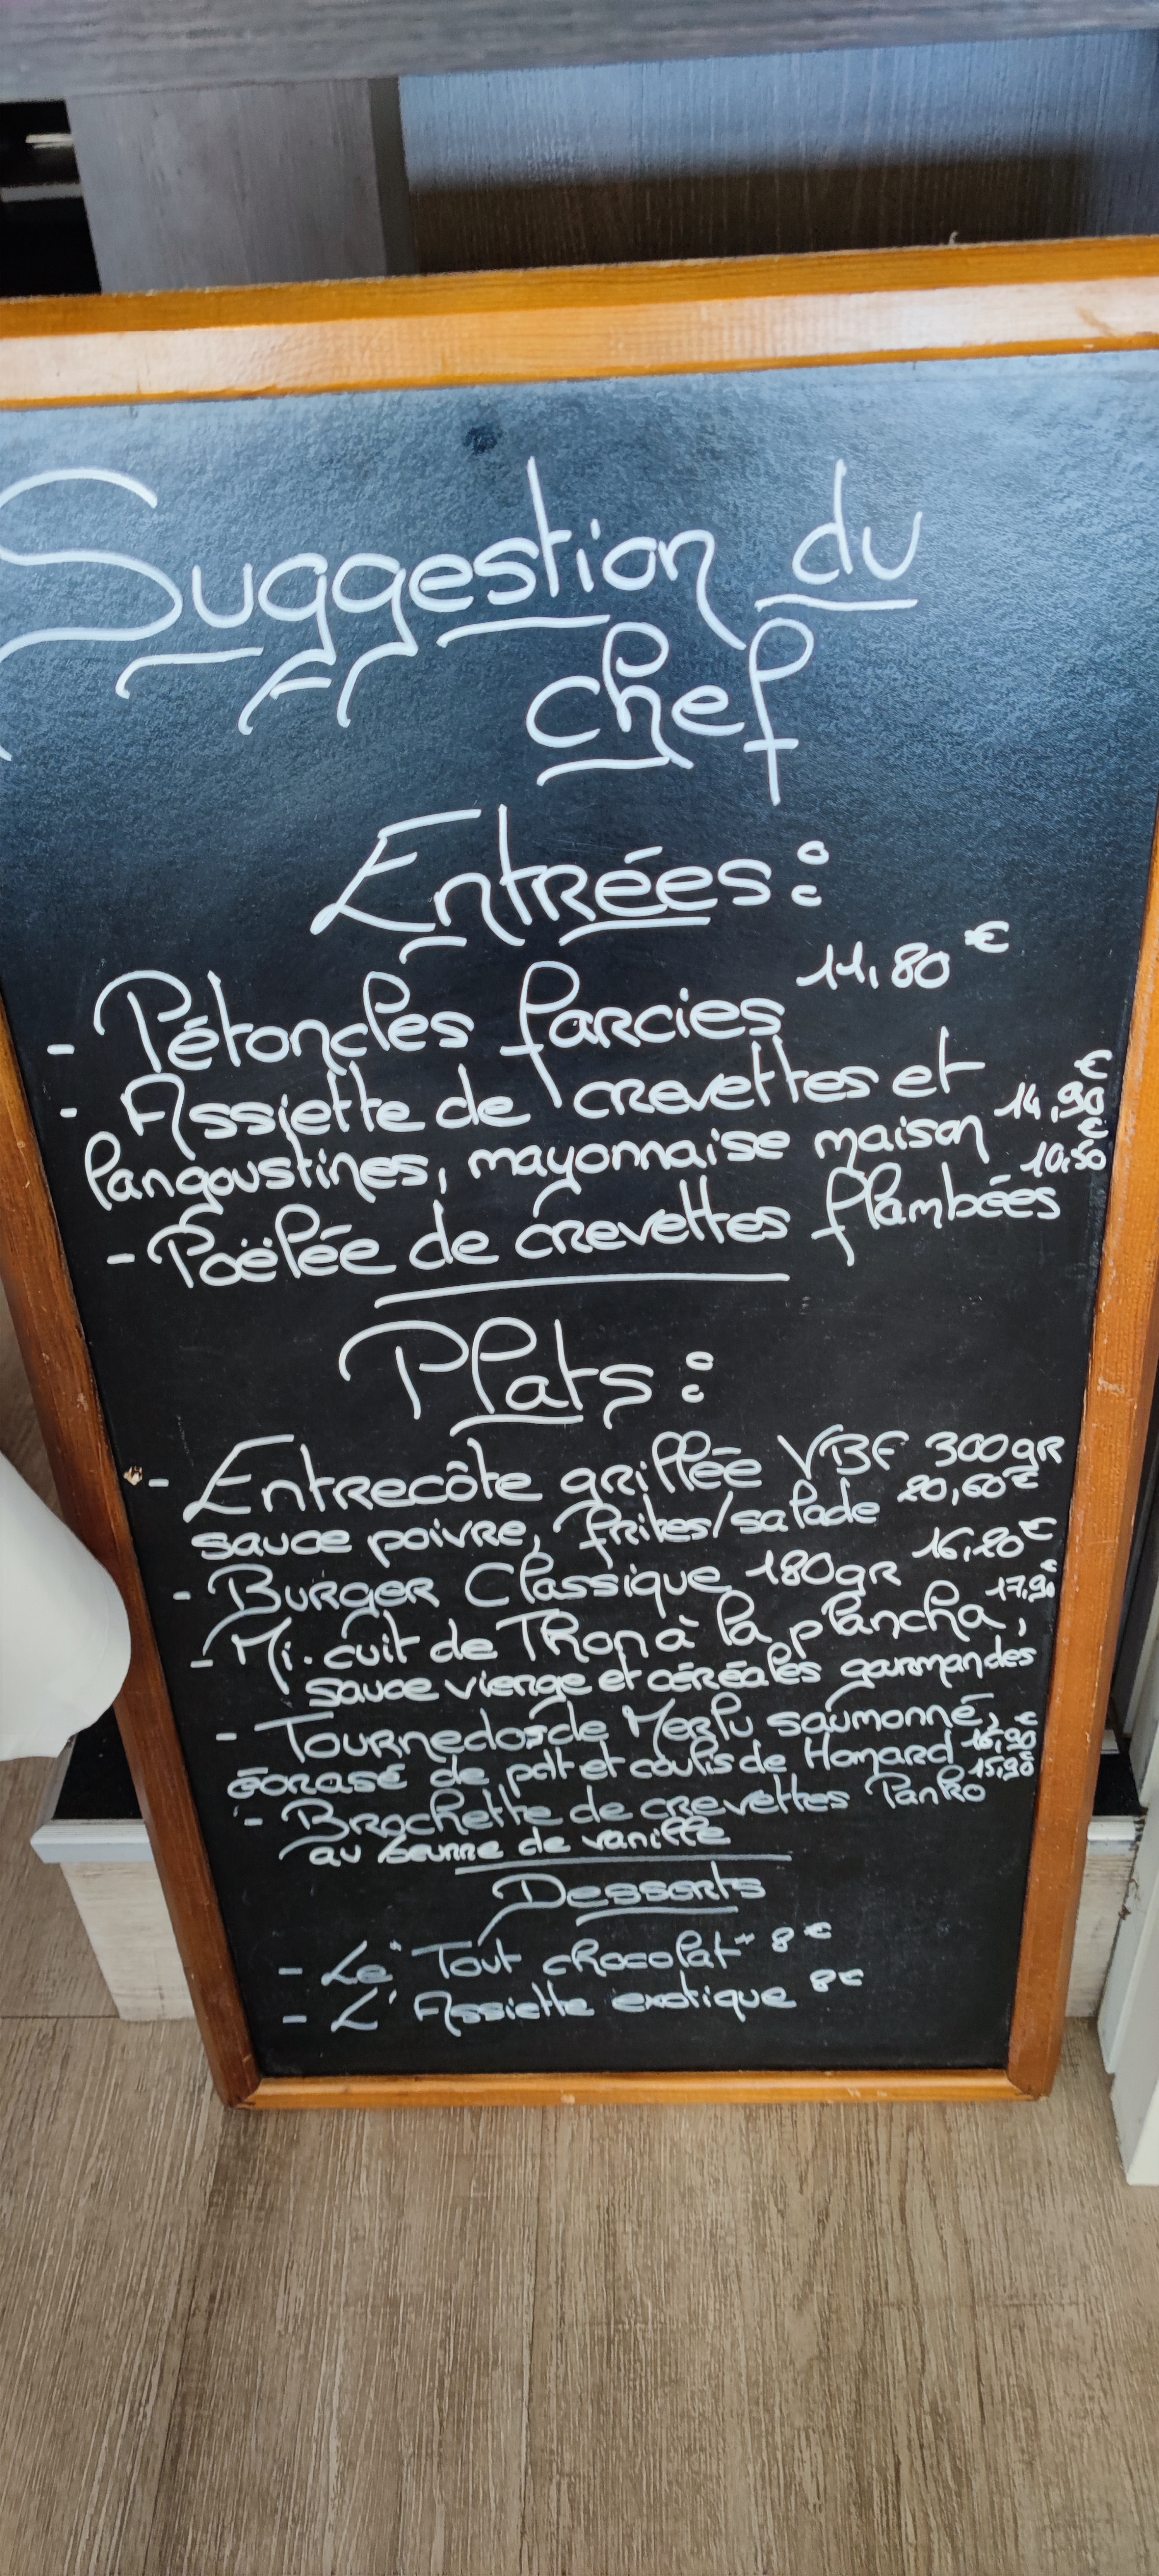 Suggestion du
chef
Entrées :
- Pétoncles farcies 11,80 €
- Assiette de crevettes et
langoustines, mayonnaise maison 14,90 €
- Poëlée de crevettes flambées 10,50 €
Plats :
- Entrecôte grillée VBF 300gr
sauce poivre, frites/salade 20,60 €
- Burger Classique 180gr 16,20 €
- Mi-cuit de Thon à la plancha, 17,90 €
sauce vierge et céréales gourmandes
- Tournedos de Merlu saumonné,
écrasé de pdt et coulis de Homard 16,90 €
- Brochette de crevettes Panko 15,90 €
au beurre de vanille
Desserts
- Le "Tout chocolat" 8 €
- L'Assiette exotique 8 €